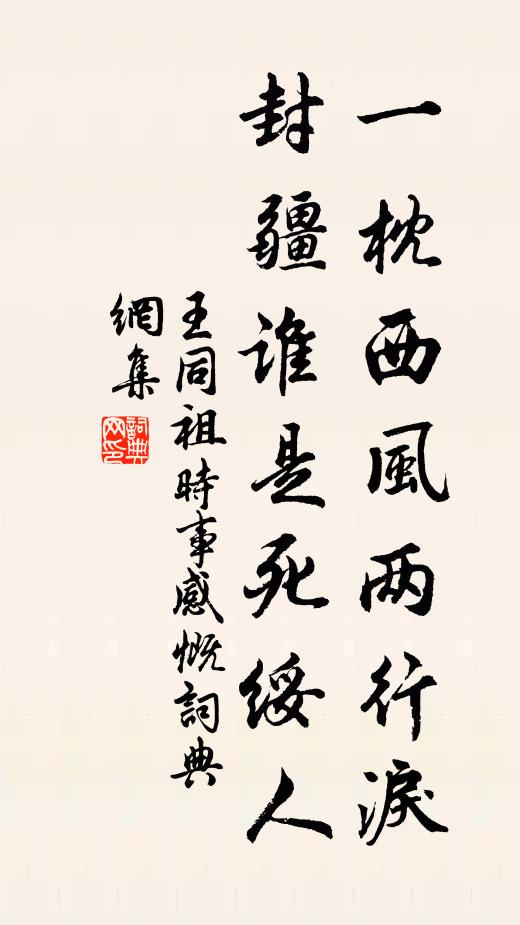 一枕西風两行淚
封疆谁是死綏人
王同祖時事感慨詞典
網集
詞典
网印